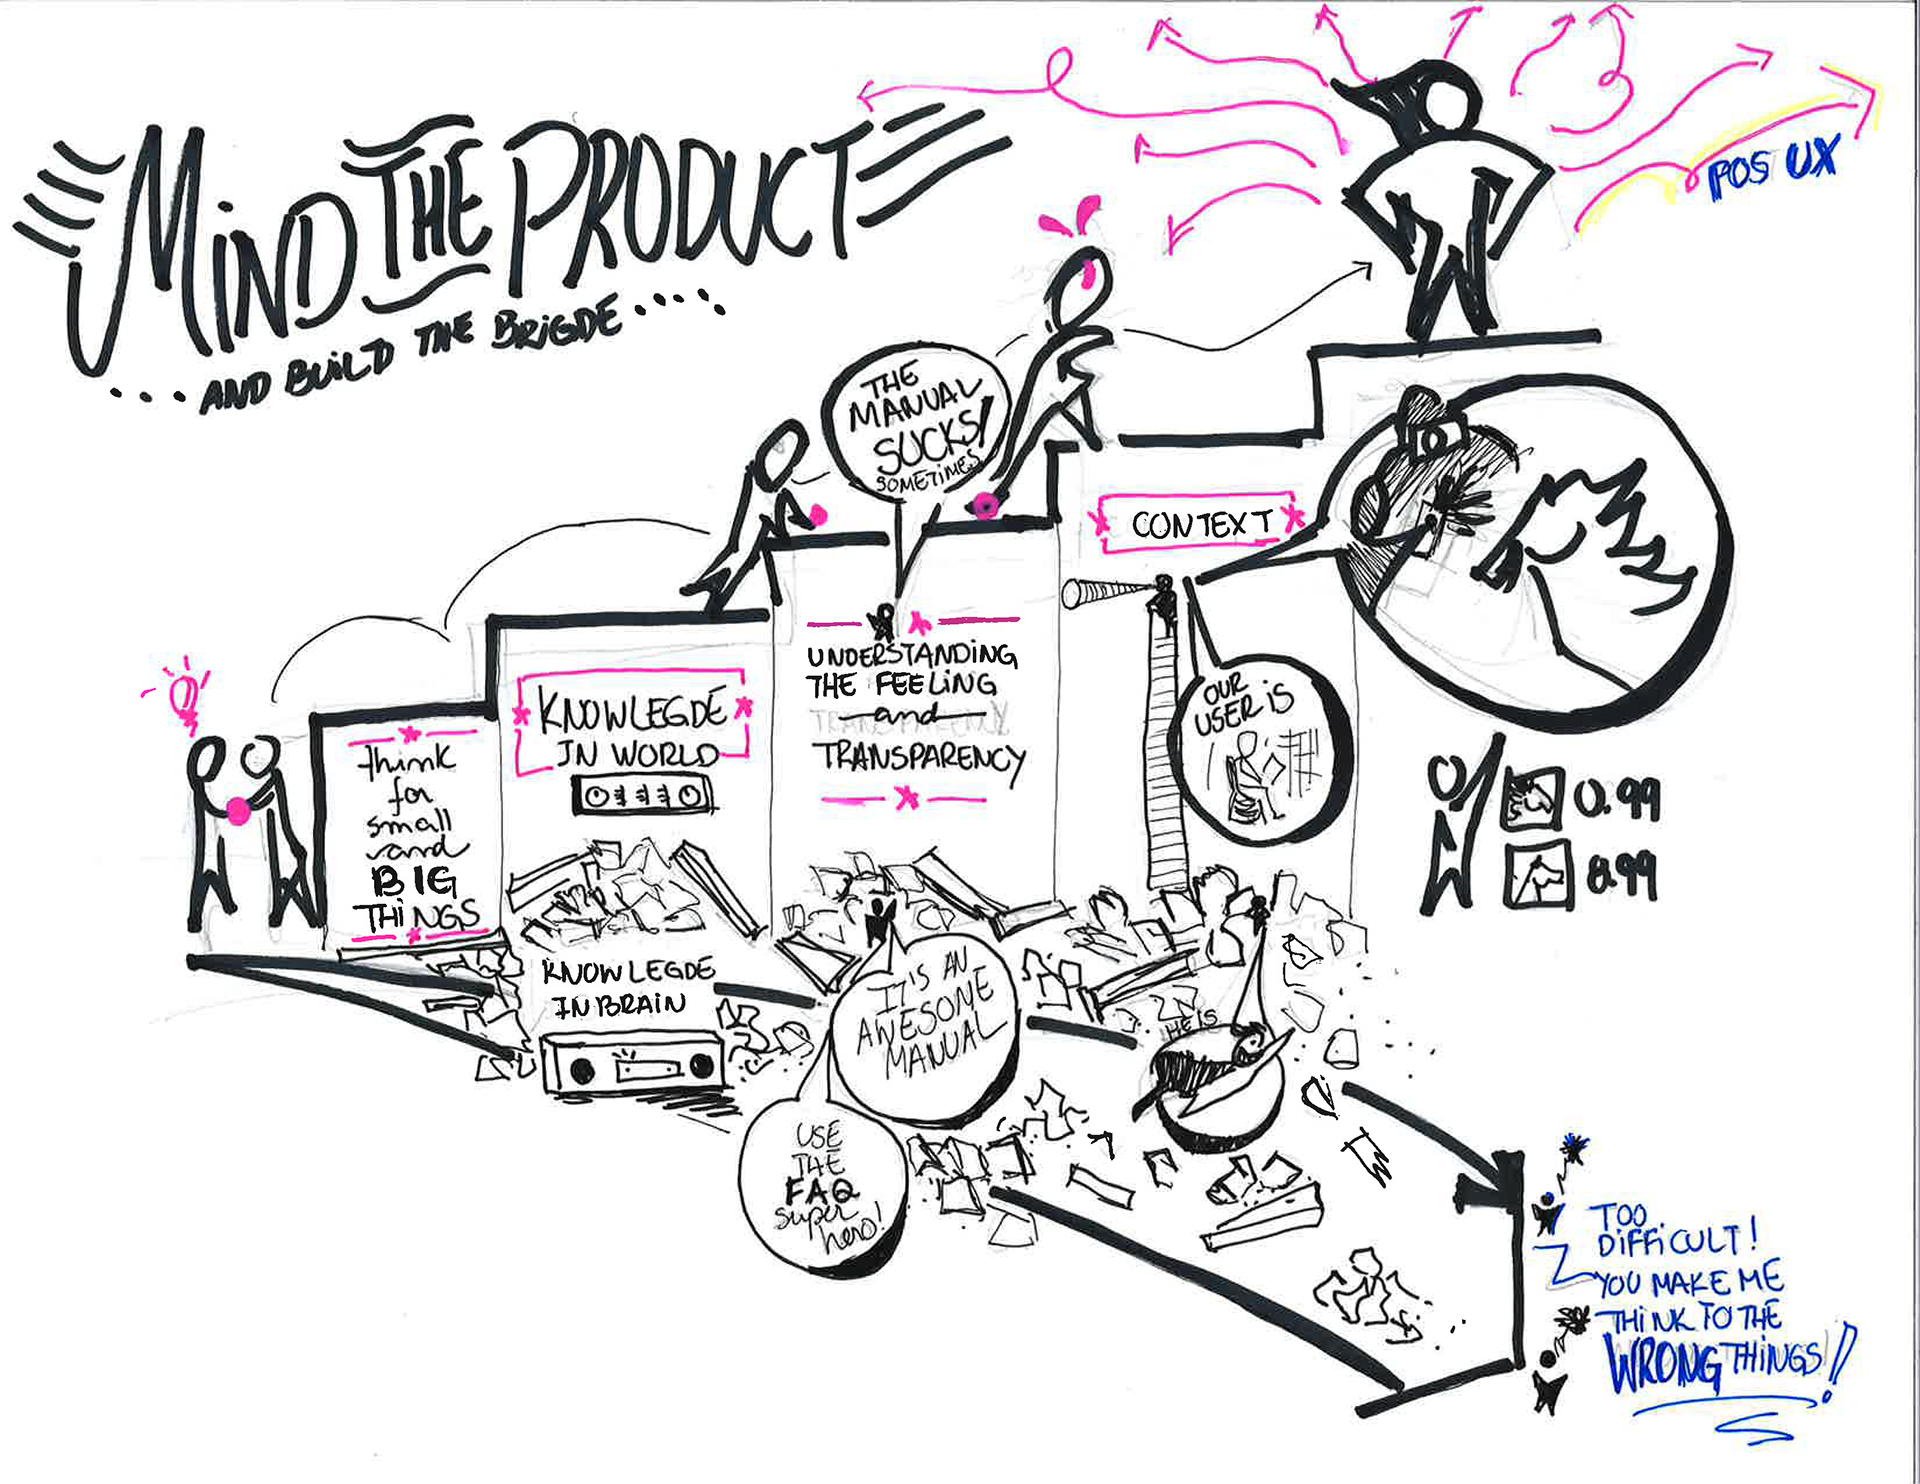 MIND THE PRODUCT
.... AND BUILD THE BRIGDE ....
POS UX
THE
MANUAL
SUCKS!
SOMETIMES
CONTEXT
OUR
USER IS
UNDERSTANDING
THE FEELING
and
TRANSPARENCY
KNOWLEGDE
IN WORLD
Think
for
small
and
BIG
THINGS
KNOWLEGDE
IN BRAIN
IT IS AN
AWESOME
MANUAL
USE
THE
FAQ
super
hero!
HE IS
0.99
8.99
TOO
DIFFICULT!
YOU MAKE ME
THINK TO THE
WRONG THINGS!!